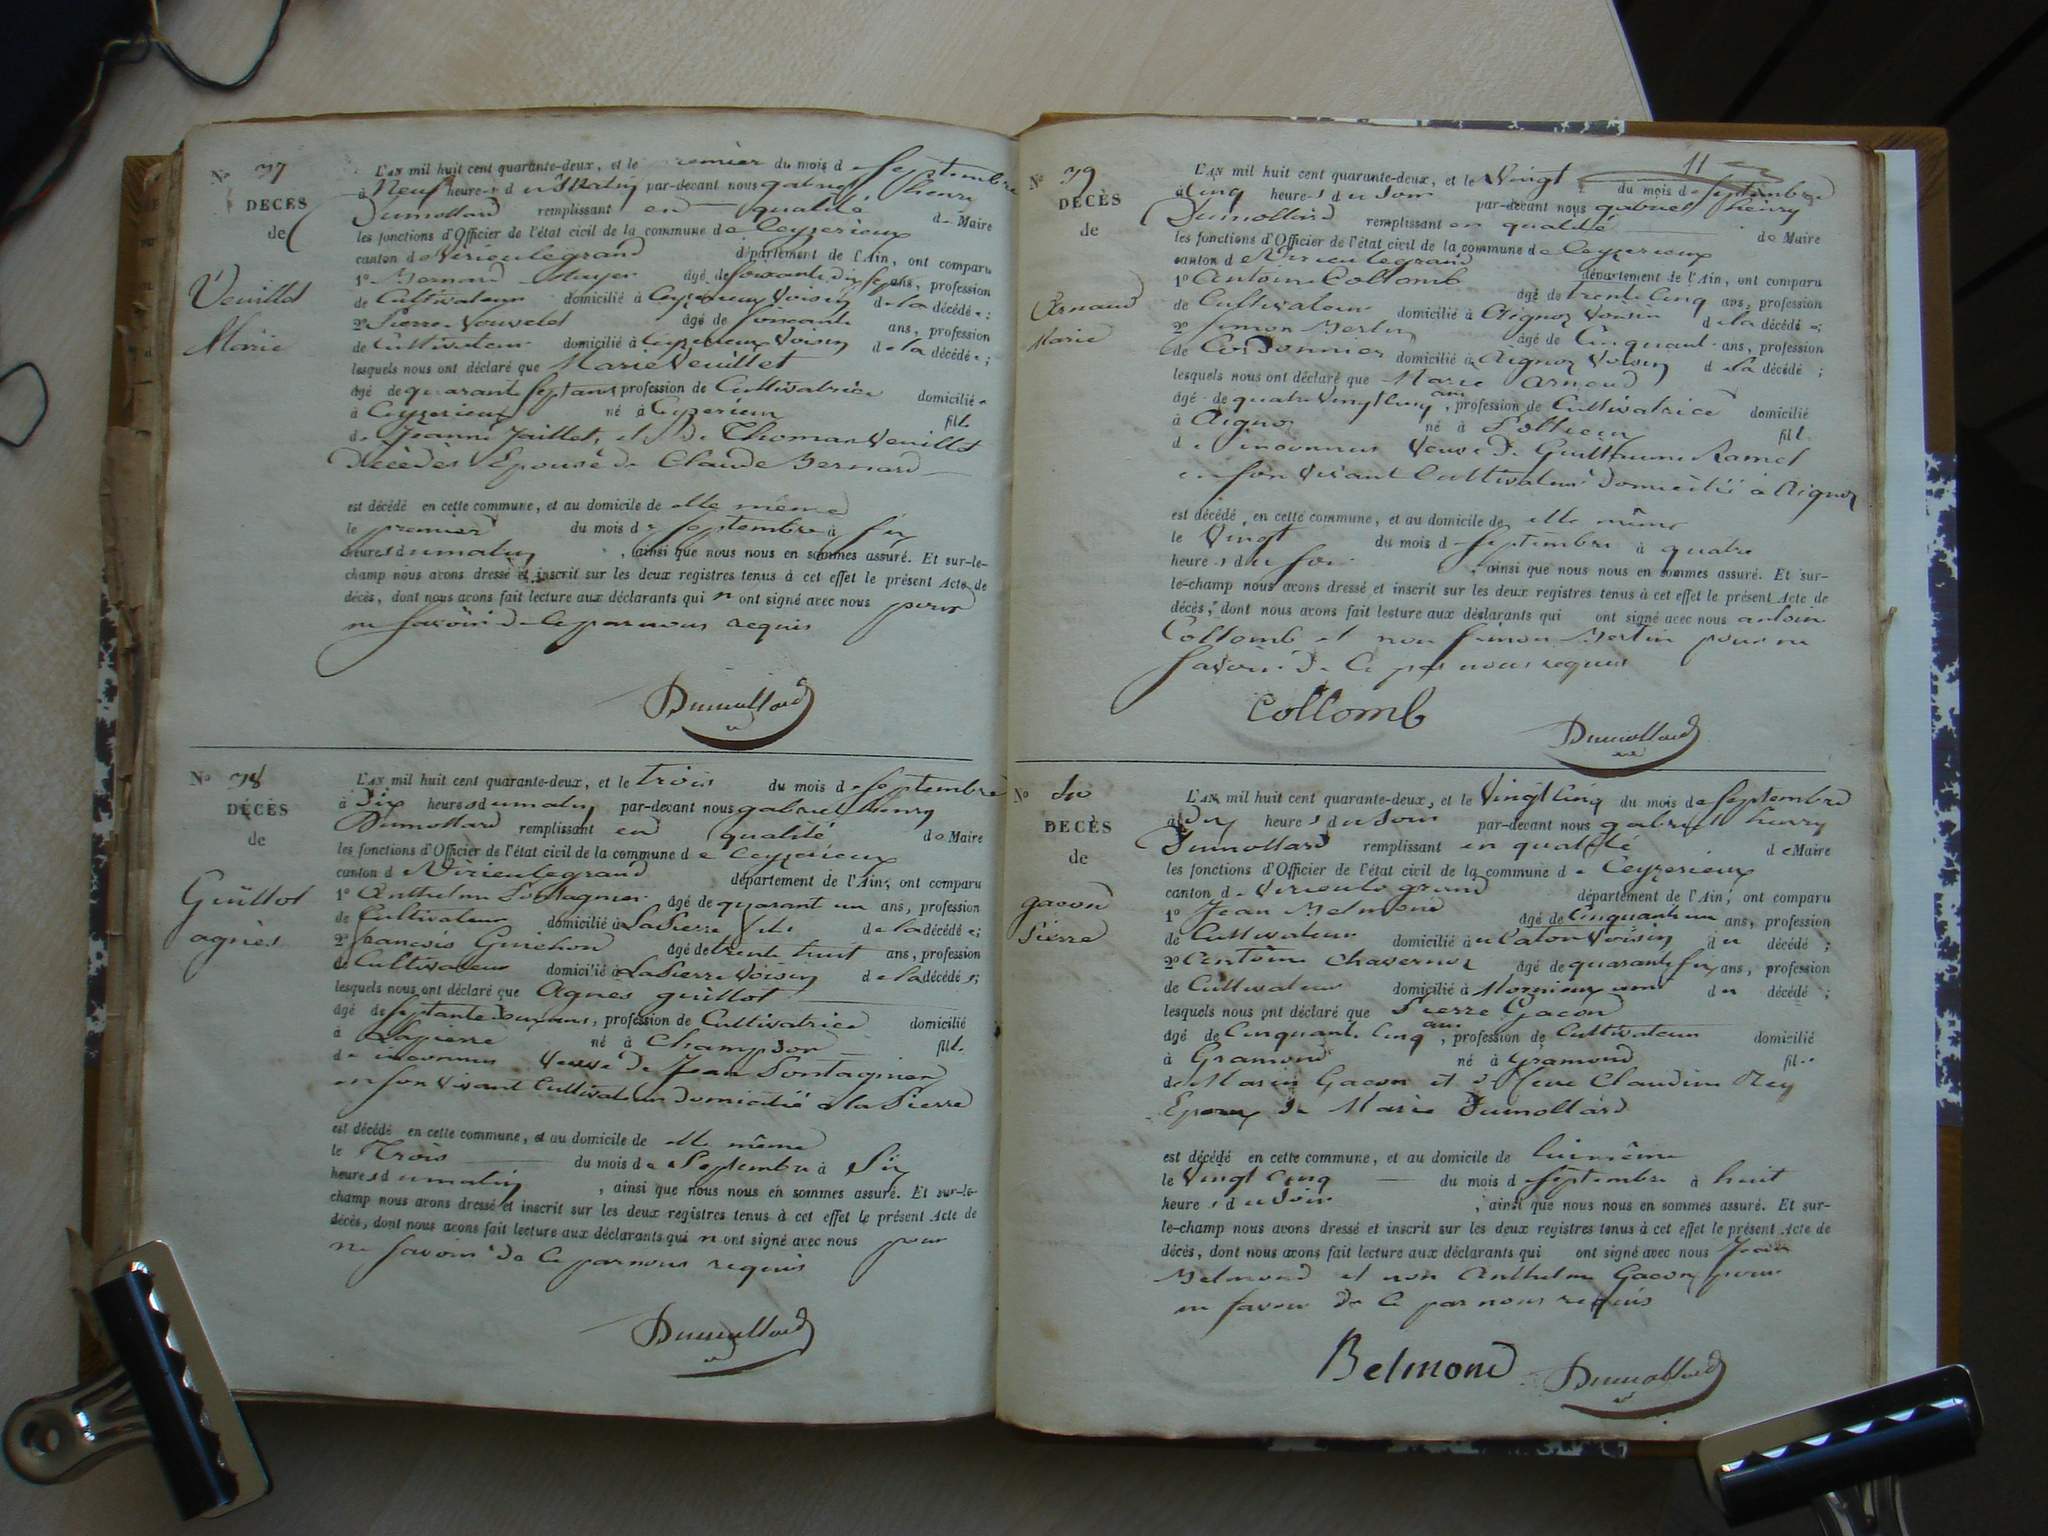 N° 37
DÉCÈS
de
Veuillet
Marie
L'AN mil huit cent quarante-deux, et le premier du mois de Septembre
à Neuf heures du Matin par-devant nous gabriel henry
Dumollard remplissant en qualité de Maire
les fonctions d'Officier de l'état civil de la commune de Ceyzerieux
canton de Virieulegrand département de l'Ain, ont comparu
1° Bernard âgé de soixante dix sept ans, profession
de Cultivateur domicilié à Ceyzerieux Voisin de la décédée;
2° Pierre âgé de soixante ans, profession
de Cultivateur domicilié à Ceyzerieux Voisin de la décédée;
lesquels nous ont déclaré que Marie Veuillet
âgé de quarante Sept ans profession de Cultivatrice domiciliée
à Ceyzerieux né à Ceyzerieux fille
de Jeanne Jaillet, et de Thomas Veuillet
décédés Epouse de Claude Bernard
est décédé en cette commune, et au domicile de elle même
le premier du mois de Septembre à six
heures du matin, ainsi que nous nous en sommes assuré. Et sur-le-
champ nous avons dressé et inscrit sur les deux registres tenus à cet effet le présent Acte de
décès, dont nous avons fait lecture aux déclarants qui n'ont signé avec nous pour
ne savoir de ce par nous requis
Dumollard
N° 38
DÉCÈS
de
Guillot
agnès
L'AN mil huit cent quarante-deux, et le trois du mois de Septembre
à Dix heures du matin par-devant nous gabriel henry
Dumollard remplissant en qualité de Maire
les fonctions d'Officier de l'état civil de la commune de Ceyzerieux
canton d Virieulegrand département de l'Ain, ont comparu
1° Anthelme Pontagnier âgé de quarant un ans, profession
de Cultivateur domicilié à La Pierre fils de la décédée;
2° francois Guichon âgé de trente huit ans, profession
de Cultivateur domicilié à La Pierre Voisin de la décédée;
lesquels nous ont déclaré que Agnès guillot
âgé de Septante ans, profession de Cultivatrice domicilié
à Lapierre né à Champdor fille
de inconnus Veuve de Jean Pontagnier
en son Vivant Cultivateur domicilié à la Pierre
est décédé en cette commune, et au domicile de elle même
le Trois du mois de Septembre à Six
heures du matin, ainsi que nous nous en sommes assuré. Et sur-le-
champ nous avons dressé et inscrit sur les deux registres tenus à cet effet le présent Acte de
décès, dont nous avons fait lecture aux déclarants qui n'ont signé avec nous pour
ne savoir de ce par nous requis
Dumollard
11
N° 39
DÉCÈS
de
Arnaud
Marie
L'AN mil huit cent quarante-deux, et le Vingt du mois de Septembre
à Cinq heures du Soir par-devant nous gabriel henry
Dumollard remplissant en qualité de Maire
les fonctions d'Officier de l'état civil de la commune de Ceyzerieux
canton de Virieulegrand département de l'Ain, ont comparu
1° Antoine Collomb âgé de trente Cinq ans, profession
de Cultivateur domicilié à Aignoz Voisin de la décédée;
2° Simon Bertin âgé de Cinquante ans, profession
de Cordonnier domicilié à Aignoz Voisin de la décédé;
lesquels nous ont déclaré que Marie Arnaud
âgé de quatre Vingt Cinq ans, profession de Cultivatrice domicilié
à Aignoz né à Pollieu fille
de inconnus Veuve de Guillaume Ramel
en son Vivant Cultivateur domicilié à Aignoz
est décédé en cette commune, et au domicile de elle même
le Vingt du mois de Septembre à quatre
heures du soir, ainsi que nous nous en sommes assuré. Et sur-
le-champ nous avons dressé et inscrit sur les deux registres tenus à cet effet le présent Acte de
décès, dont nous avons fait lecture aux déclarants qui ont signé avec nous antoine
Collomb et non Simon Bertin pour ne
savoir de Ce par nous requis
Collomb Dumollard
N° 40
DÉCÈS
de
gacon
Pierre
L'AN mil huit cent quarante-deux, et le Vingt Cinq du mois de Septembre
à Dix heures du Soir par-devant nous gabriel henry
Dumollard remplissant en qualité de Maire
les fonctions d'Officier de l'état civil de la commune de Ceyzerieux
canton de Virieulegrand département de l'Ain, ont comparu
1° Jean Belmond âgé de Cinquante un ans, profession
de Cultivateur domicilié à Voisin du décédé;
2° Chavernoz âgé de quarante six ans, profession
de Cultivateur domicilié à du décédé;
lesquels nous ont déclaré que Pierre Gacon
âgé de Cinquante Cinq ans, profession de Cultivateur domicilié
à Gramond né à Gramond fils
de Marin Gacon et de Claudine Rey
Epoux de Marie Dumollard
est décédé en cette commune, et au domicile de lui même
le Vingt Cinq du mois de Septembre à huit
heures du Soir, ainsi que nous nous en sommes assuré. Et sur-
le-champ nous avons dressé et inscrit sur les deux registres tenus à cet effet le présent Acte de
décès, dont nous avons fait lecture aux déclarants qui ont signé avec nous Jean
Belmond et non Anthelme Gacon pour
ne savoir de Ce par nous requis
Belmond Dumollard